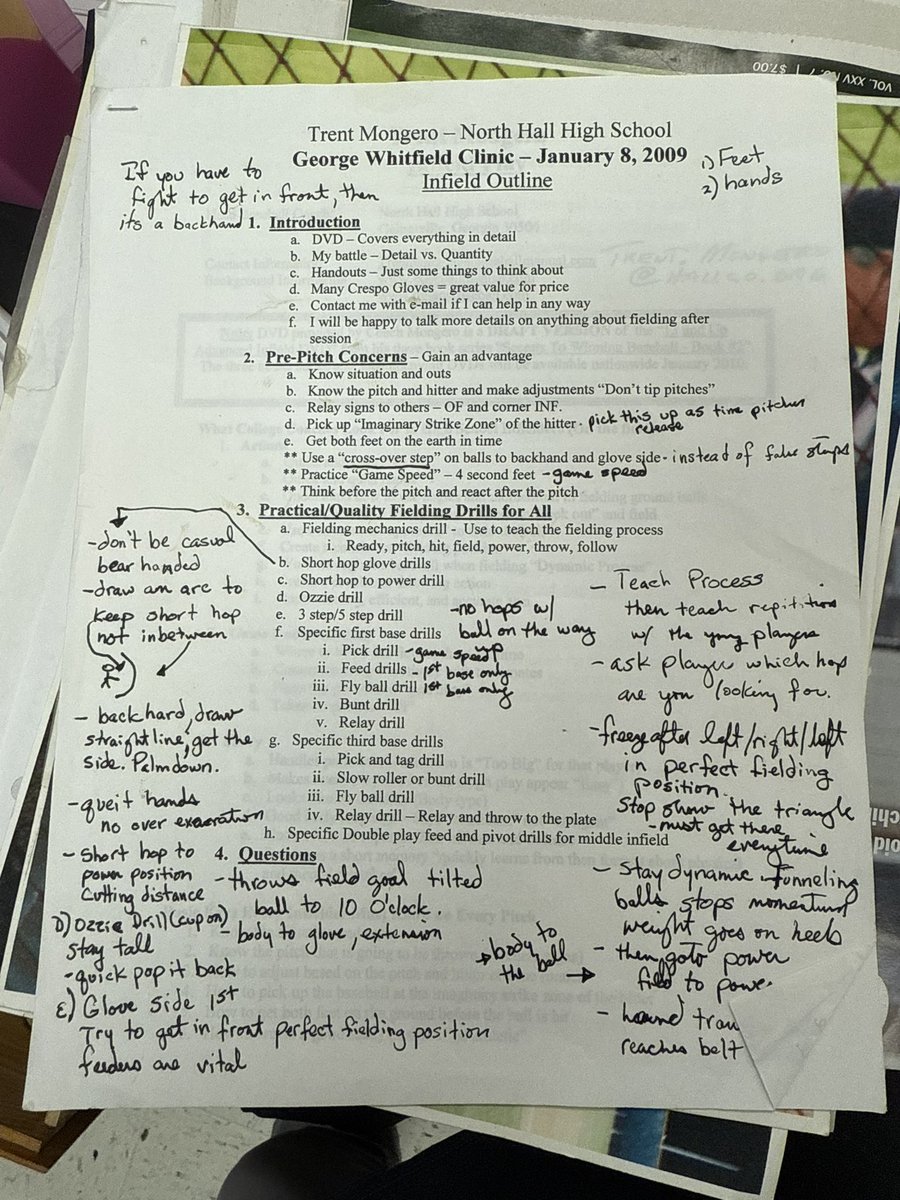 VOL. XXV No. 7 | $7.00
Trent Mongero – North Hall High School
George Whitfield Clinic – January 8, 2009
Infield Outline
1) Feet
2) hands
If you have to
fight to get in front, then
its a backhand
1. Introduction
a. DVD – Covers everything in detail
b. My battle – Detail vs. Quantity
c. Handouts – Just some things to think about
d. Many Crespo Gloves = great value for price
e. Contact me with e-mail if I can help in any way
f. I will be happy to talk more details on anything about fielding after
session
2. Pre-Pitch Concerns – Gain an advantage
a. Know situation and outs
b. Know the pitch and hitter and make adjustments “Don’t tip pitches”
c. Relay signs to others – OF and corner INF.
d. Pick up “Imaginary Strike Zone” of the hitter - pick this up as time pitcher
release
e. Get both feet on the earth in time
** Use a “cross-over step” on balls to backhand and glove side - instead of false steps
** Practice “Game Speed” – 4 second feet - game speed
** Think before the pitch and react after the pitch
3. Practical/Quality Fielding Drills for All
a. Fielding mechanics drill - Use to teach the fielding process
i. Ready, pitch, hit, field, power, throw, follow
b. Short hop glove drills
c. Short hop to power drill
d. Ozzie drill
e. 3 step/5 step drill - no hops w/
ball on the way
up
f. Specific first base drills
i. Pick drill - game speed
ii. Feed drills - 1st base only
iii. Fly ball drill 1st base only
iv. Bunt drill
v. Relay drill
g. Specific third base drills
i. Pick and tag drill
ii. Slow roller or bunt drill
iii. Fly ball drill
iv. Relay drill – Relay and throw to the plate
h. Specific Double play feed and pivot drills for middle infield
4. Questions
- don't be casual
bear handed
- draw an arc to
keep short hop
not inbetween
- backhard, draw
straight line, get the
side. Palm down.
- queit hands
no over exageration
- Short hop to
power position
Cutting distance
D) Ozzie Drill (cup on)
stay tall
- quick pop it back
E) Glove Side 1st
Try to get in front perfect fielding position
feeders are vital
- throws field goal tilted
ball to 10 O'clock.
- body to glove, extension
body to
the ball
- Teach Process
then teach repititions
w/ the yong players
- ask player which hop
are you looking for.
- freeze after left/right/left
in perfect fielding
position.
stop show the triangle
- must get there
everytime
- stay dynamic. Funneling
balls stops momentum
weight goes on heels
- then go to power
field to power
- hand
reaches belt